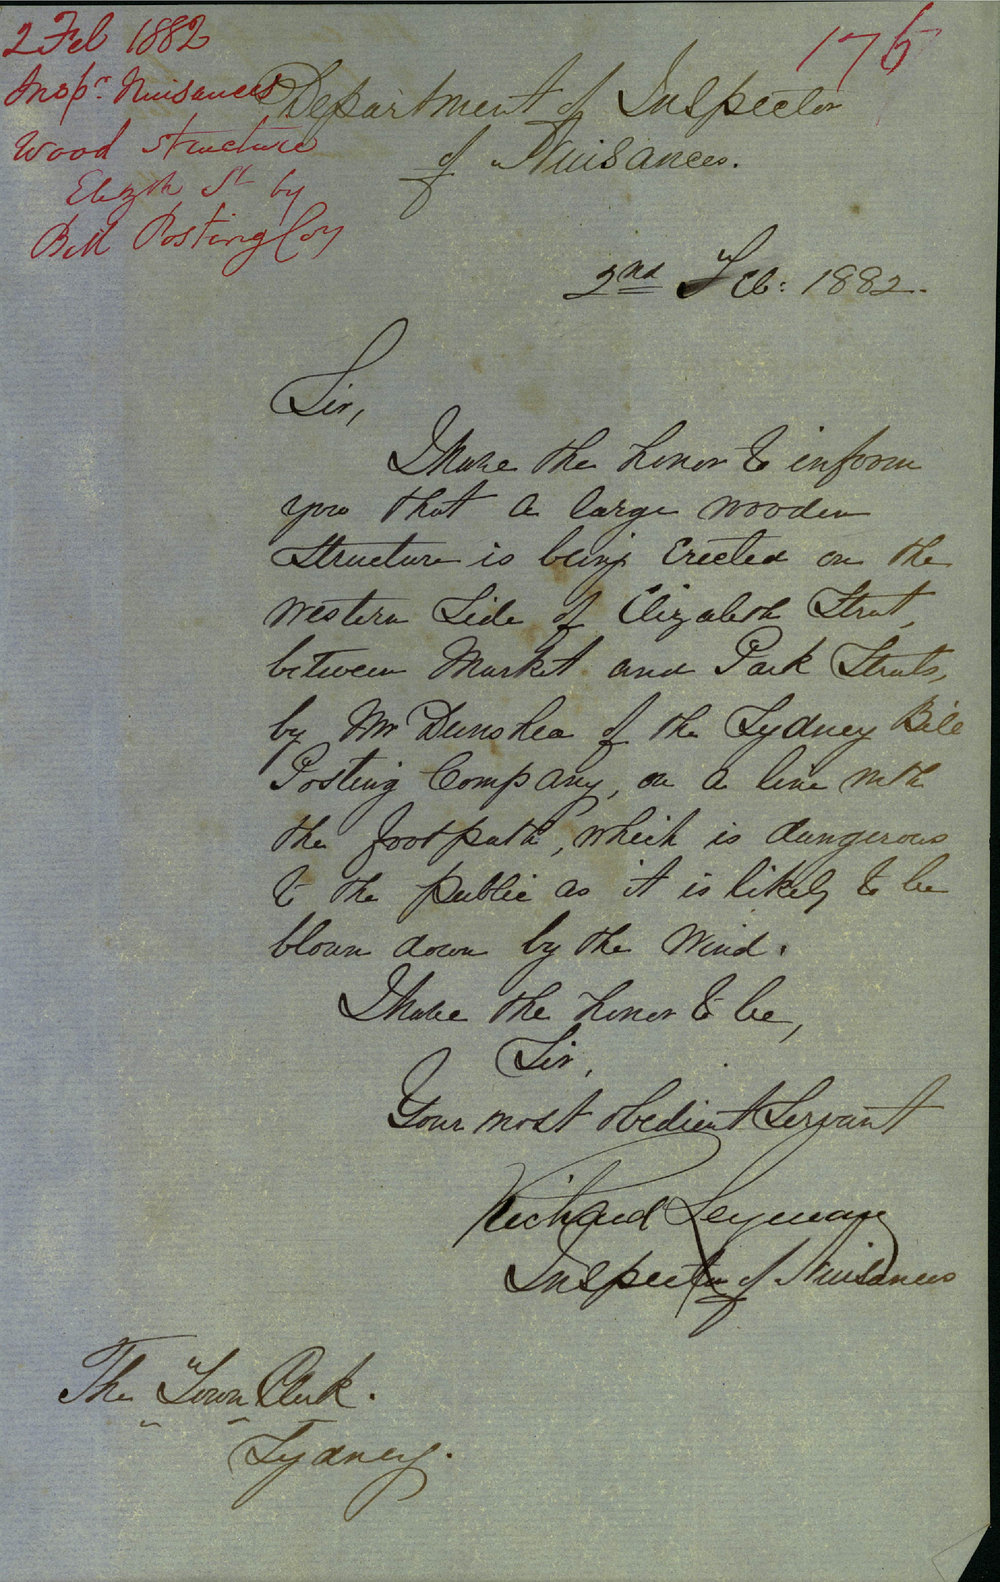 2 Feb 1882
Inspr. Nuisances
Wood structure
Elizth St by
Bill Posting Coy
175
Department of Inspector
of Nuisances.
2nd Feb: 1882.
Sir,
I have the honor to inform
you that a large wooden
Structure is being Erected on the
Western Side of Elizabeth Street,
between Market and Park Streets,
by Mr Dunshea of the Sydney Bill
Posting Company, on a line with
the footpath, which is dangerous
to the public as it is likely to be
blown down by the Wind.
I have the honor to be,
Sir,
Your most obedient Servant
Richard Seymour
Inspector of Nuisances
The Town Clerk.
Sydney.